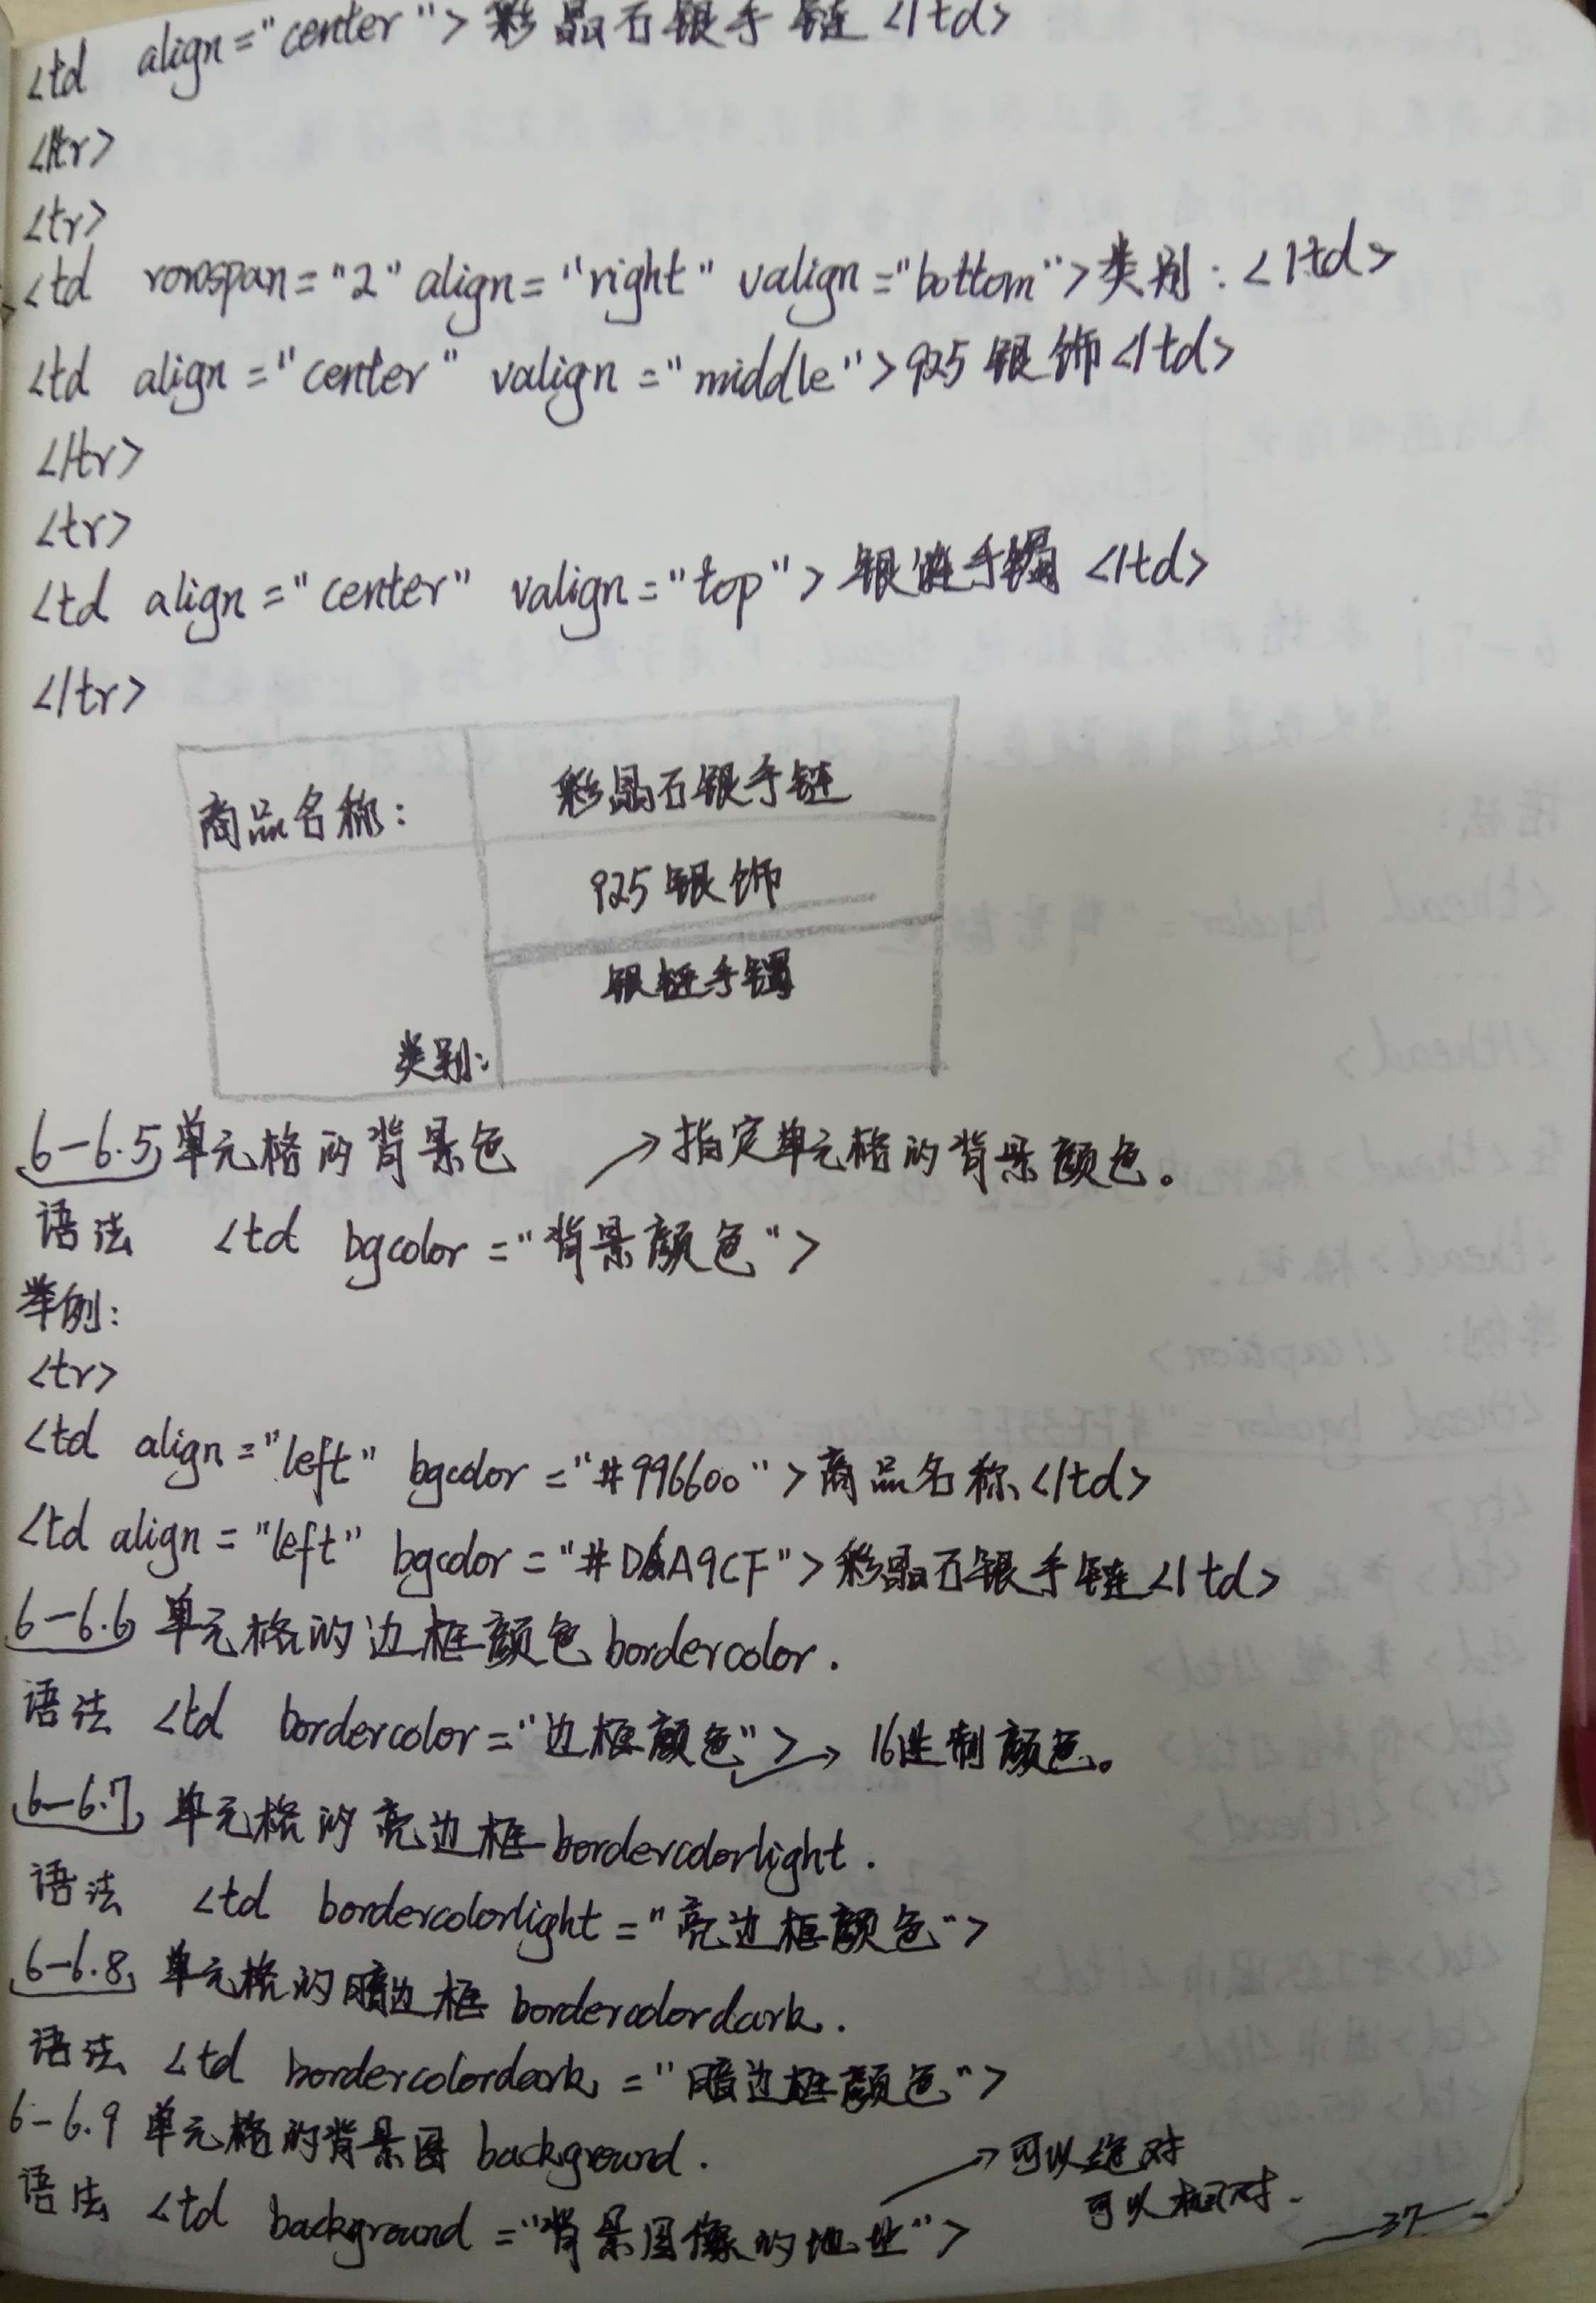 <td align="center">彩晶石银手链</td>
</tr>
<tr>
<td rowspan="2" align="right" valign="bottom">类别:</td>
<td align="center" valign="middle">925银饰</td>
</tr>
<tr>
<td align="center" valign="top">银链手镯</td>
</tr>
商品名称: 彩晶石银手链
925银饰
银链手镯
类别:
6-6.5 单元格的背景色 →指定单元格的背景颜色。
语法 <td bgcolor="背景颜色">
举例:
<tr>
<td align="left" bgcolor="#996600">商品名称</td>
<td align="left" bgcolor="#D6A9CF">彩晶石银手链</td>
6-6.6 单元格的边框颜色 bordercolor.
语法 <td bordercolor="边框颜色"> → 16进制颜色。
6-6.7 单元格的亮边框 bordercolorlight.
语法 <td bordercolorlight="亮边框颜色">
6-6.8 单元格的暗边框 bordercolordark.
语法 <td bordercolordark="暗边框颜色">
6-6.9 单元格的背景图 background.
语法 <td background="背景图像的地址"> →可以绝对
可以相对.
37